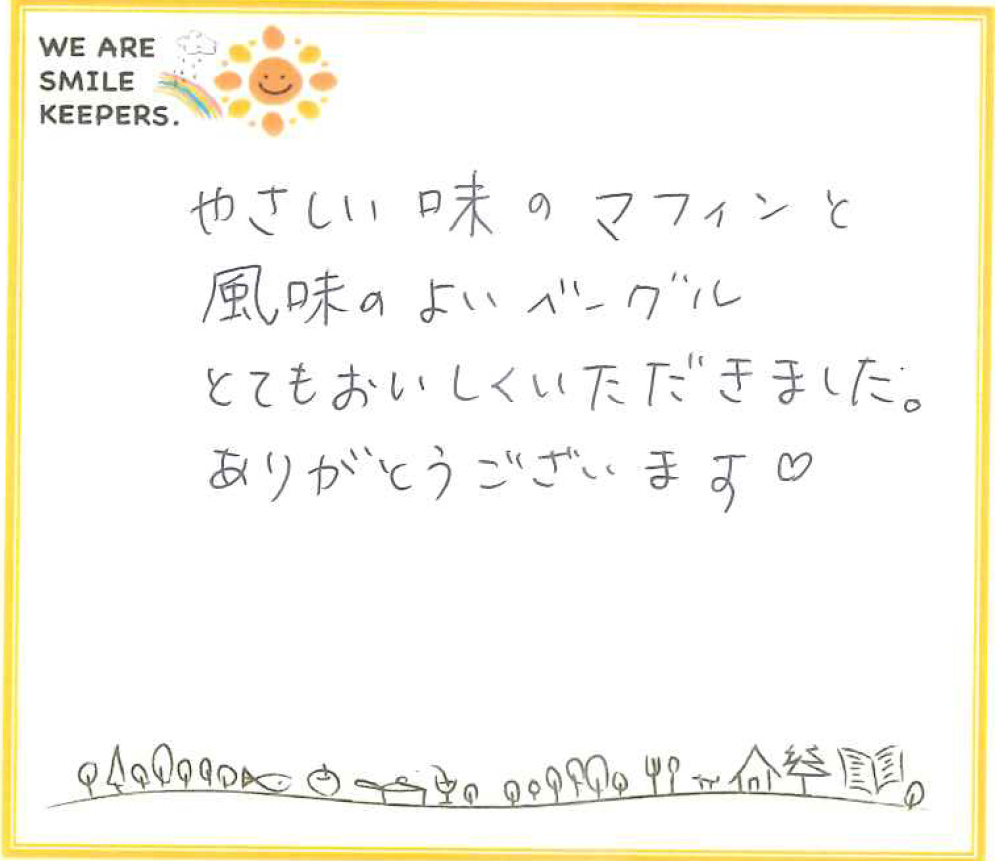 WE ARE
SMILE
KEEPERS.
やさしい味のマフィンと
風味のよいベーグル
とてもおいしくいただきました。
ありがとうございます♡